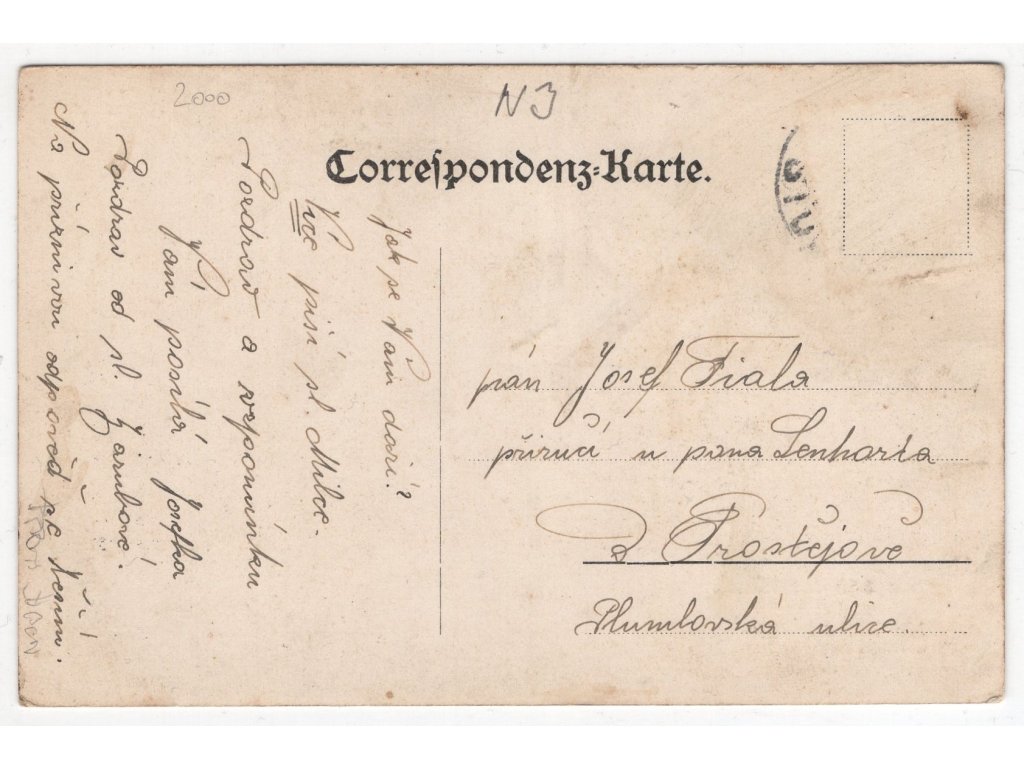 2000
N3
Correspondenz-Karte.
Jak se Vám daří?
Více píší sl. Milce.
Pozdrav a vzpomínku
Vám posílá Josefka
Pozdrav od sl. Zárubové.
Na příznivou odpověď se těším.
pán Josef Fiala
příručí u pana Lenharta
v Prostějově
Plumlovská ulice.